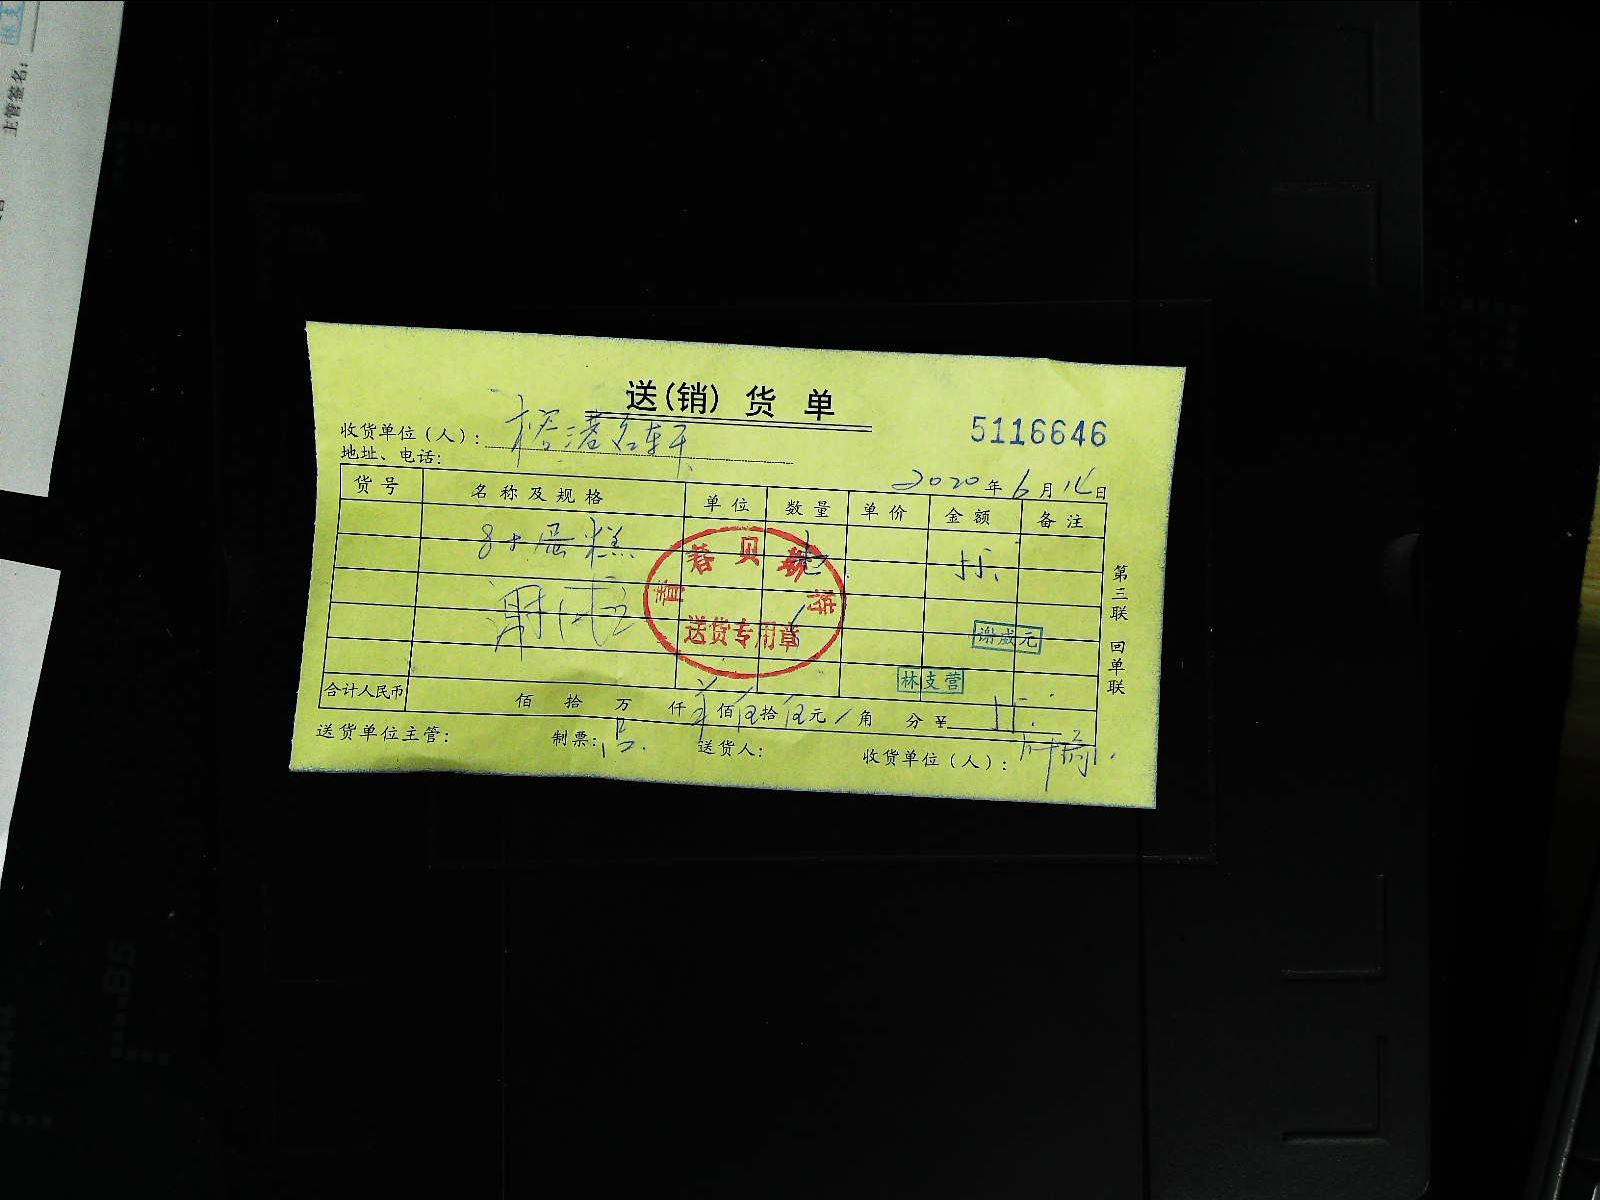 主管签名:
送(销)货单
5116646
收货单位(人): 榕港名轩
地址、电话:
2020年6月14日
货号 名称及规格 单位 数量 单价 金额 备注
8寸蛋糕 55.
贝
送货专用章
谢威元
林支营
第三联 回单联
合计人民币 佰 拾 万 仟 佰伍拾伍元 角 分 ¥ 55.
送货单位主管: 制票: 送货人: 收货单位(人):